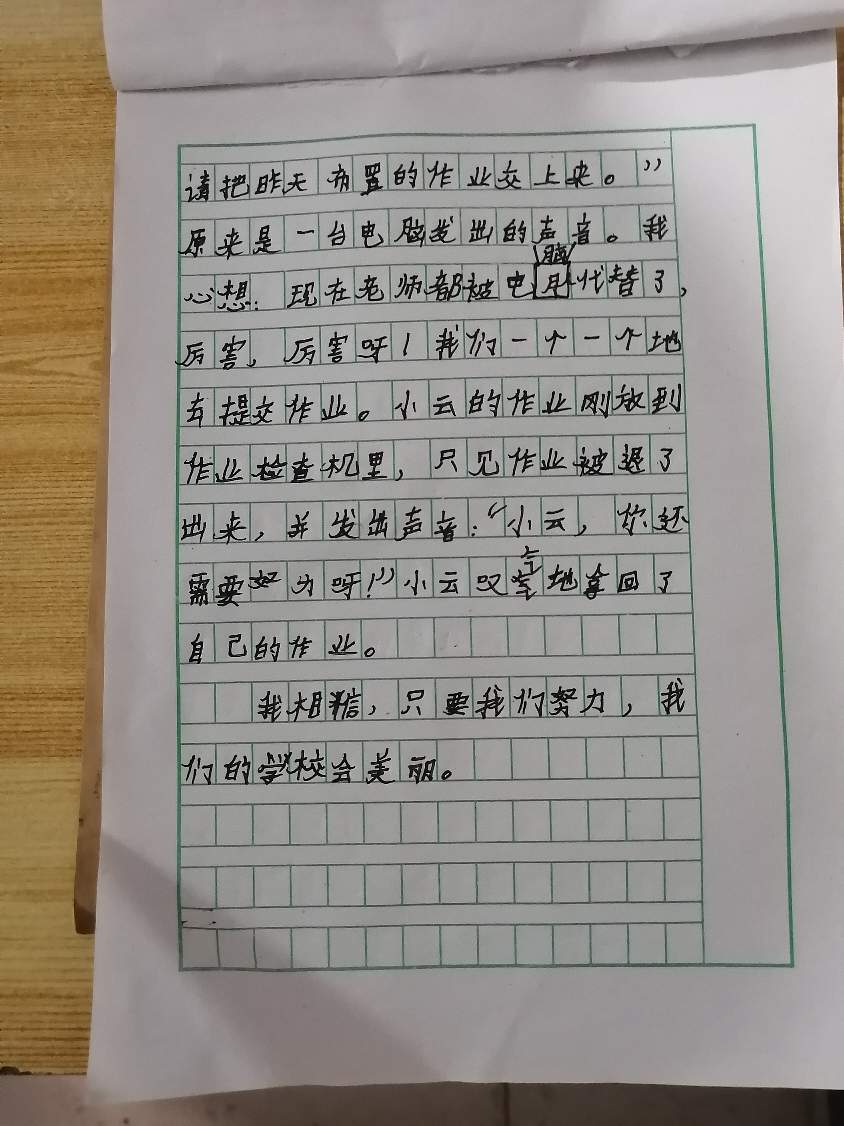 请把昨天布置的作业交上来。”
原来是一台电脑发出的声音。我
心想：现在老师都被电脑代替了，
厉害，厉害呀！我们一个一个地
去提交作业。小云的作业刚放到
作业检查机里，只见作业被退了
出来，并发出声音：“小云，你还
需要努力呀！”小云叹气地拿回了
自己的作业。
我相信，只要我们努力，我
们的学校会美丽。